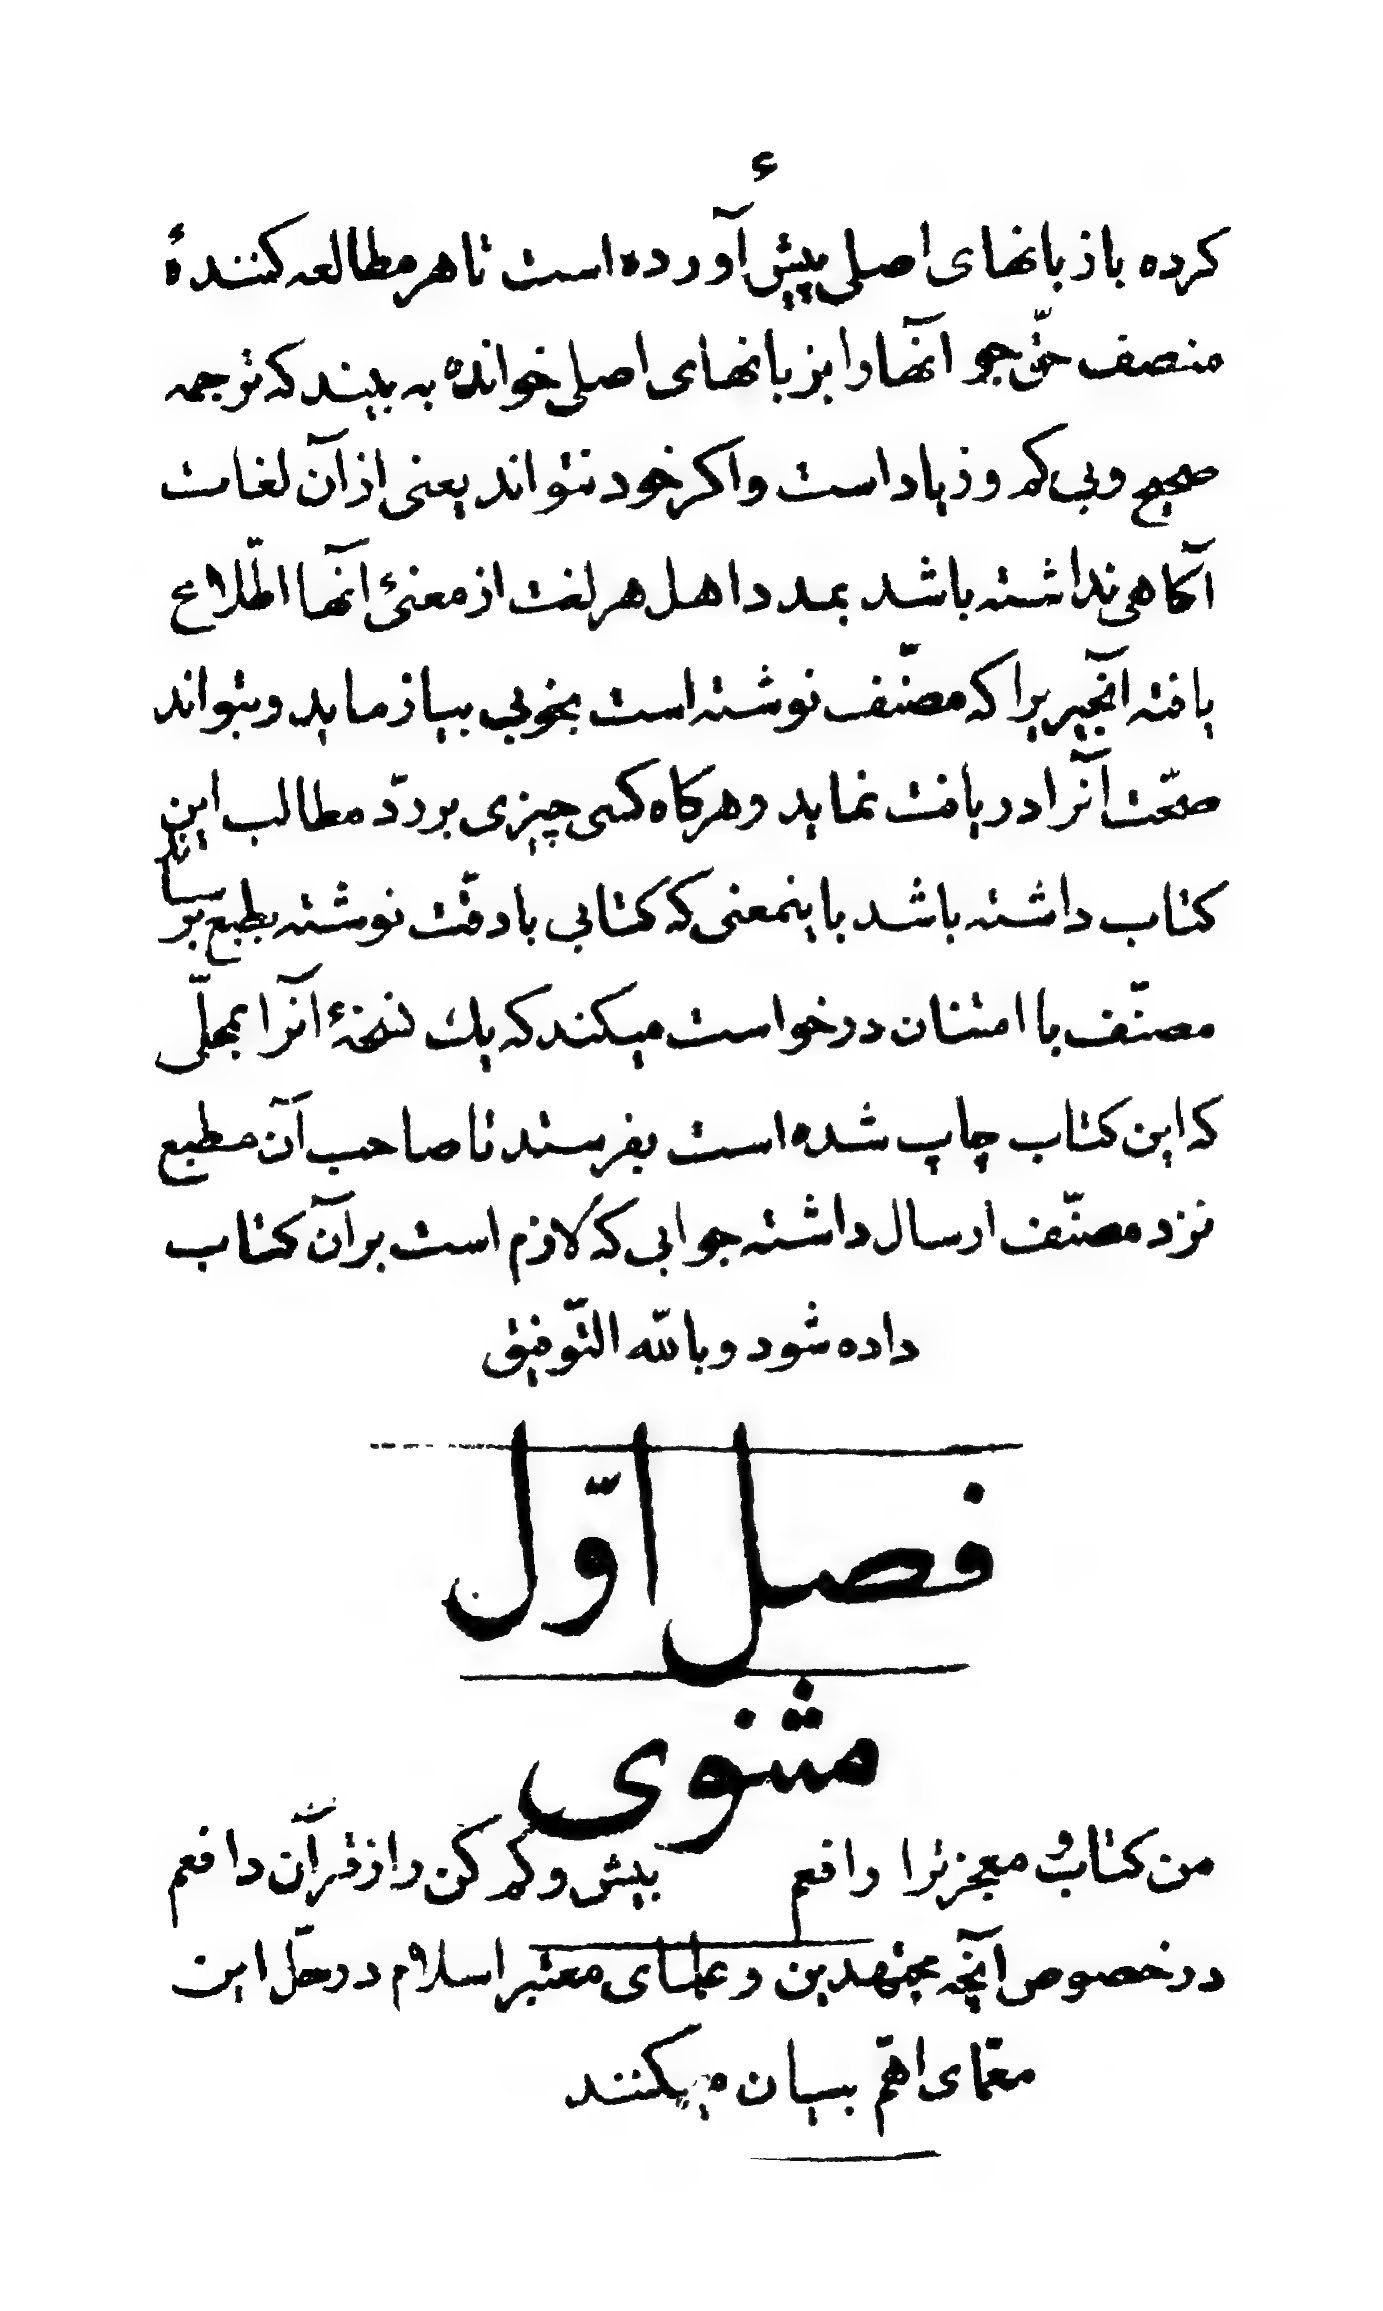 ۴
کرده باز بانهای اصلی پیش آورده است تا هر مطالعه کنندهٔ
منصف حقّ جو آنها را بزبانهای اصلی خوانده به بیند که ترجمه
صحیح و بی کم و زیاد است و اکر خود نتواند یعنی از آن لغات
آکاهی نداشته باشد بمدد اهل هر لغت از معنیٔ آنها اطّلاع
یافته آنچیریرا که مصنّف نوشته است بخوبی بیازماید و بتواند
صحّت آنرا دریافت نماید و هرکاه کسی چیزی بر ردّ مطالب این
کتاب داشته باشد باینمعنی که کتابی با دقّت نوشته بطبع بر
ساند
مصنّف با امتنان درخواست میکند که یك نسخهٔ آنرا بمحلّی
که این کتاب چاپ شده است بفرستد تا صاحب آن مطبع
نزد مصنّف ارسال داشته جوابی که لازم است بر آن کتاب
داده شود و بالله التّوفیق
فصل اوّل
مثنوی
من کتاب و معجزترا رافعم بیش و کم کن را ز قرآن دافعم
در خصوص آنچه مجتهدین و علمای معتبر اسلام در حلّ این
معّمای اهّم بیان میکنند